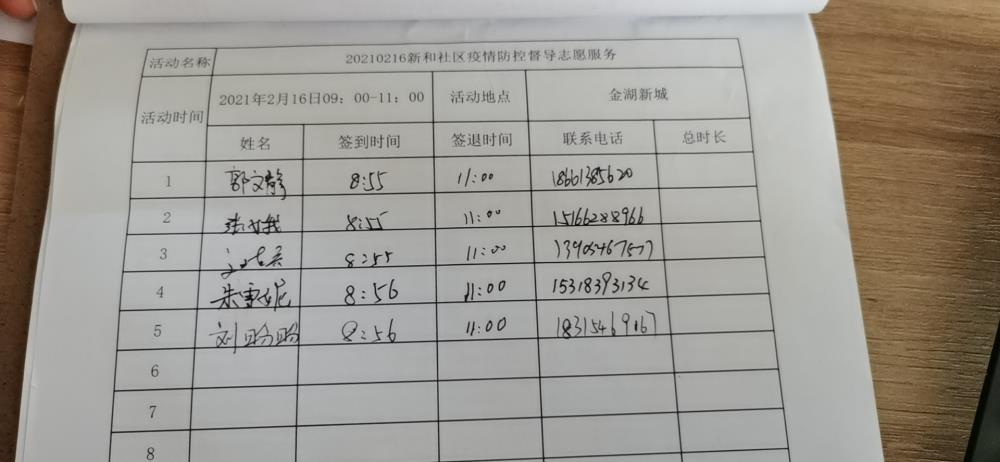 活动名称 20210216新和社区疫情防控督导志愿服务
活动时间 2021年2月16日09：00-11：00 活动地点 金湖新城
姓名 签到时间 签退时间 联系电话 总时长
1 郭文静 8:55 11:00 18661385620
2 8:55 11:00 15166288966
3 8:55 11:00
4 朱雪妮 8:56 11:00 15318393134
5 刘盼盼 8:56 11:00
6
7
8